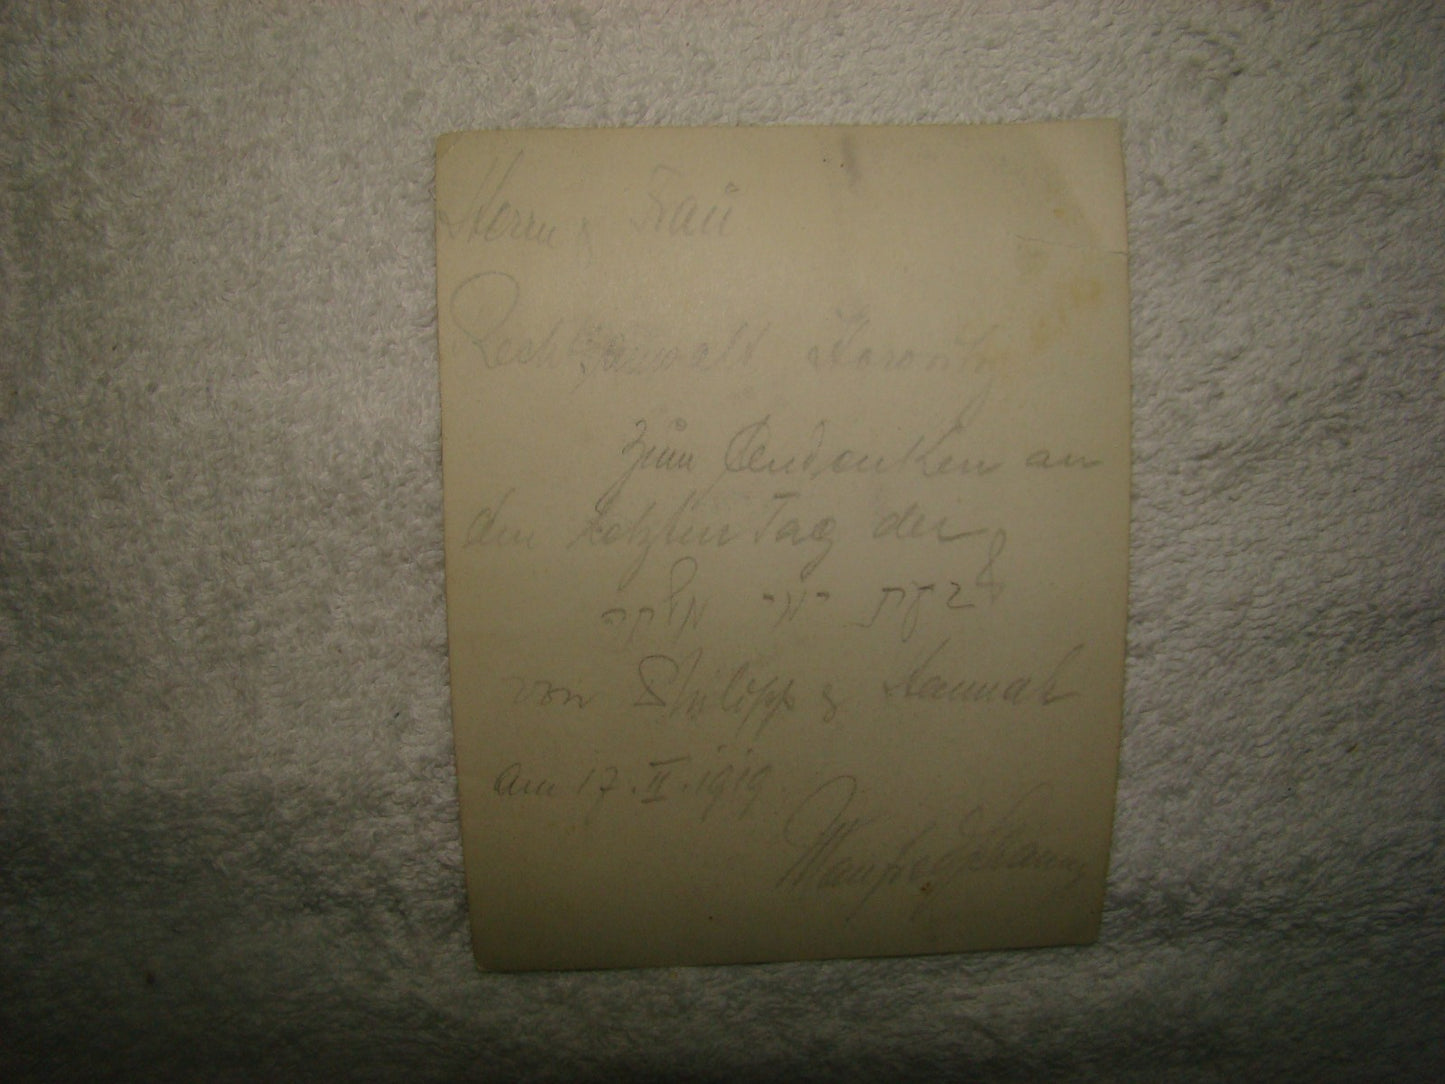 Herrn & Frau
Rechtsanwalt Horovitz
zum Andenken an
den letzten Tag der
שבעת ימי
von Philipp & Hannah
am 17.II.1919.
Manfred